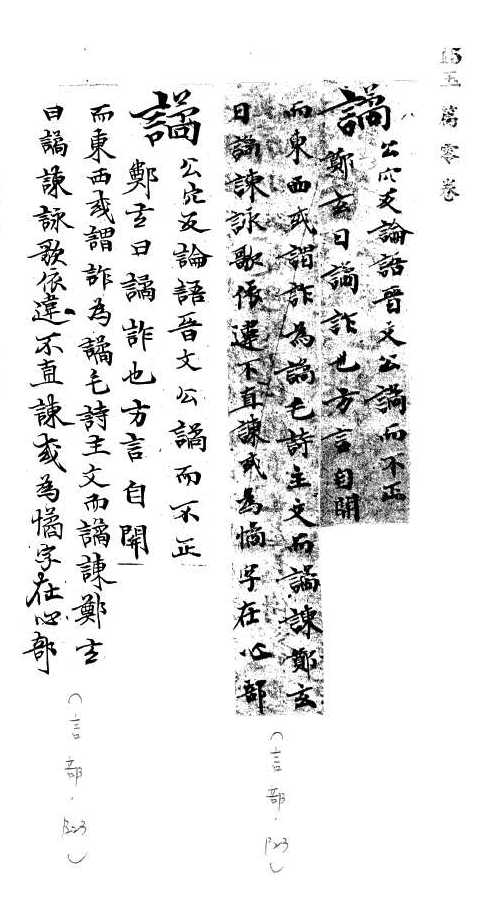 15
玉篇零卷
譎公穴反論語晉文公譎而不正
鄭玄曰譎詐也方言自關
而東西或謂詐為譎毛詩主文而譎諫鄭玄
曰譎諫詠歌依違不直諫或為憰字在心部
(言部·P23)
譎公穴反論語晉文公譎而不正
鄭玄曰譎詐也方言自開
而東西或謂詐為譎毛詩主文而譎諫鄭玄
曰譎諫詠歌依違不直諫或為憰字在心部
(言部·P23)